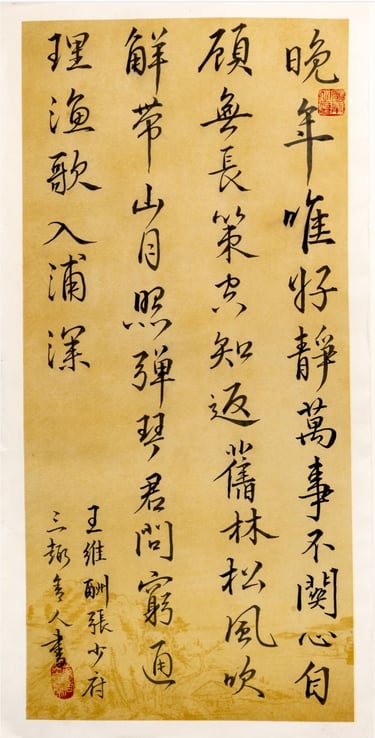 晚年唯好靜萬事不關心自
顧無長策空知返舊林松風吹
解帶山月照彈琴君問窮通
理漁歌入浦深
王維酬張少府
三趣舍人書